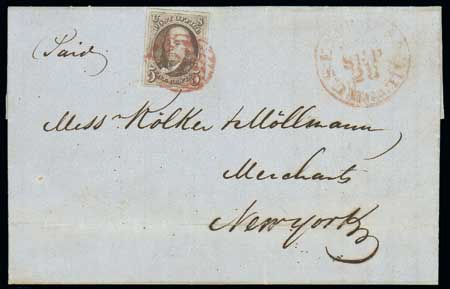 Paid
POST OFFICE
5 5
SEP
28
Mess Kölker & Möllmann
Merchants
New york